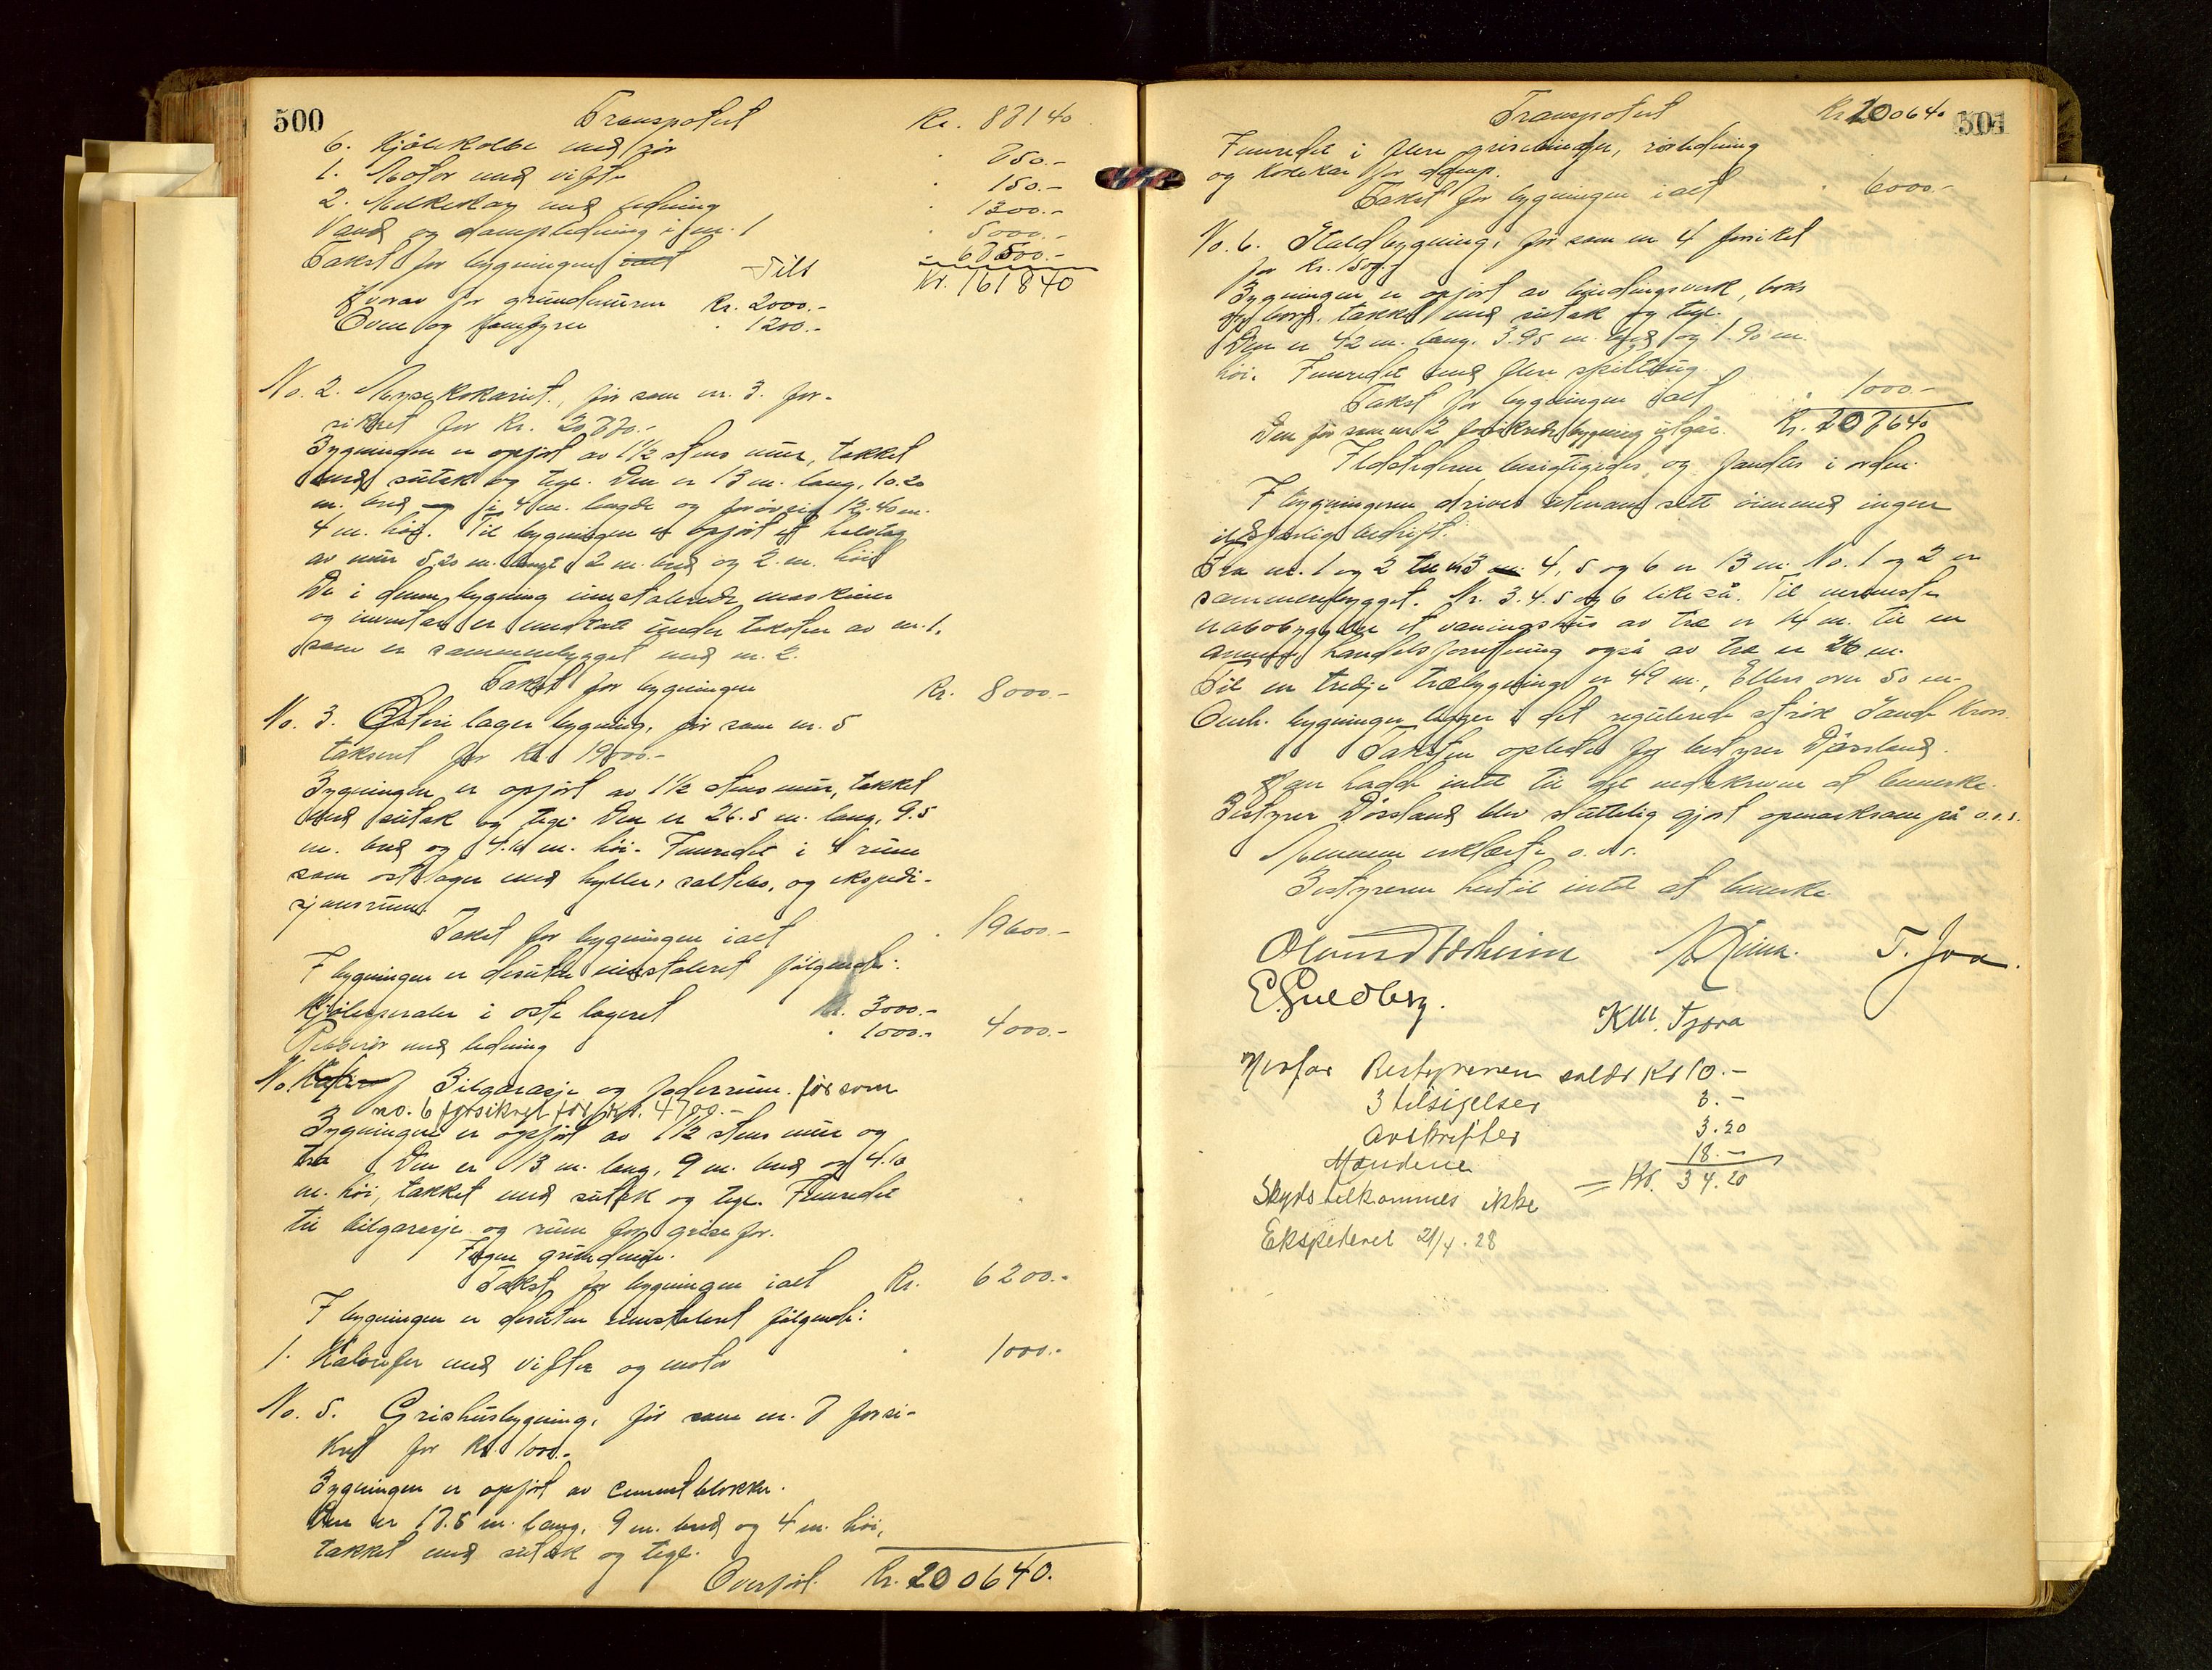 500
Transportert Kr. 87140
6. Kjölekolbe med rör " 750.-
1. Motor med vifte " 150.-
2. Melkekar med ledning " 1300.-
Vand og dampledning i nr. 1 " 5000.-
Takst for bygningen ialt Tils - 67500.-
Kr. 161840
Hvorav for grundmuren Kr. 2000.-
Oven og komfyrer " 1200.-
No. 2. Mysekokeriet, för som nr. 3. for-
sikret for Kr. 20770.-
Bygningen er opfört av 1½ stens mur, tækket
med sutak og tegl. Den er 13 m. lang, 10.20
m. bred i 4 m. lengde og forövrig 12.40 m.
4 m. höi. Til bygningen er opfört et halvtag
av mur 5.20 m. langt 2 m. bred og 2. m. höit
De i denne bygning innstalerede maskiner
og inventar er medtatt under taksten av nr. 1,
som er sammenbygget med nr. 2.
Takst for bygningen Kr. 8000-
No. 3. Osteri lager bygning, för som nr. 5
takseret for Kr. 19000.-
Bygningen er opfört av 1½ stens mur, tækket
med sutak og tegl. Den er 26.5 m. lang, 9.5
m. bred og 4.10 m. höi. Innredet i 4 rum
som ostelager med hyller, saltebo, og ekspedi-
sjonsrum.
Takst for bygningen ialt " 19600.-
I bygningen er desuten innstaleret fölgende:
Kjölespiraler i oste lageret Kr. 3000.-
Ribberör med ledning " 1000.- 4000.-
No. Bilgarasje og foderrum. för som
no. 6 forsikret for Kr. 4700.-
Bygningen er opfört av 1½ stens mur og
træ Den er 13 m. lang, 9 m. bred og 4.10
m. höi, tækket med sutak og tegl. Innredet
til bilgarasje og rum for grisefor.
Ingen grundmur.
Takst for bygningen ialt Kr. 6200.-
I bygningen er desuten innstaleret fölgende:
1. Kalorifer med vifter og motor " 1000.-
No. 5. Grishusbygning, för som nr. 7 forsi-
kret for Kr. 1000.-
Bygningen er opfört av cementblokker.
Den er 17.5 m. lang, 9 m. bred og 4 m. höi,
tækket med sutak og tegl.
Overfört. Kr. 200640.
501
Transportert Kr. 200640
Innredet i flere grisebinger, rörledning
og kokekar for damp.
Takst for bygningen ialt " 6000.-
No. 6. Staldbygning, för som nr 4 forsikret
for Kr. 1500.-
Bygningen er opfört av bindingsverk, boks
og bord. tækket med sutak og tegl.
Den er 42 m. lang. 3.95 m. bred og 1.90 m.
höi. Innredet med flere spilltaug.
Takst for bygningen ialt " 1000.-
Den för som nr 2 forsikrede bygning utgår. Kr. 207640
Ildstederne besigtigedes og fandtes i orden.
I bygningerne drives utenom sett öimmed ingen
ildsfarlig bedrift.
Fra nr. 1 og 2 til nr 3 4, 5 og 6 er 13 m. No. 1 og 2 er
sammenbygget. Nr. 3. 4. 5 og 6 likeså. Til nermeste
nabobygning et våningshus av træ er 14 m. til en
annen handelsforretning også av træ er 26 m.
Til en tredje træbygning er 49 m., Ellers over 50 m.
Omh. bygninger ligger i det regulerede strök Sande Kross.
Taksten oplæstes for bestyrer Dössland.
Han hadde intet til det nedskrevne at bemerke.
Bestyrer Dössland blev sluttelig gjort opmerksom på o.s.v.
Mennene erklærte o.s.v.
Bestyreren hertil intet at bemerke.
T. Joa.
E. Guldberg.
K. M. Tjora
Herfor Bestyreren salær Kr 10.-
3 tilsigelser 3.-
Avskrifter 3.20
Mændene 18.-
= Kr. 34.20
Skyds tilkommes ikke
Ekspederet 21/4.28